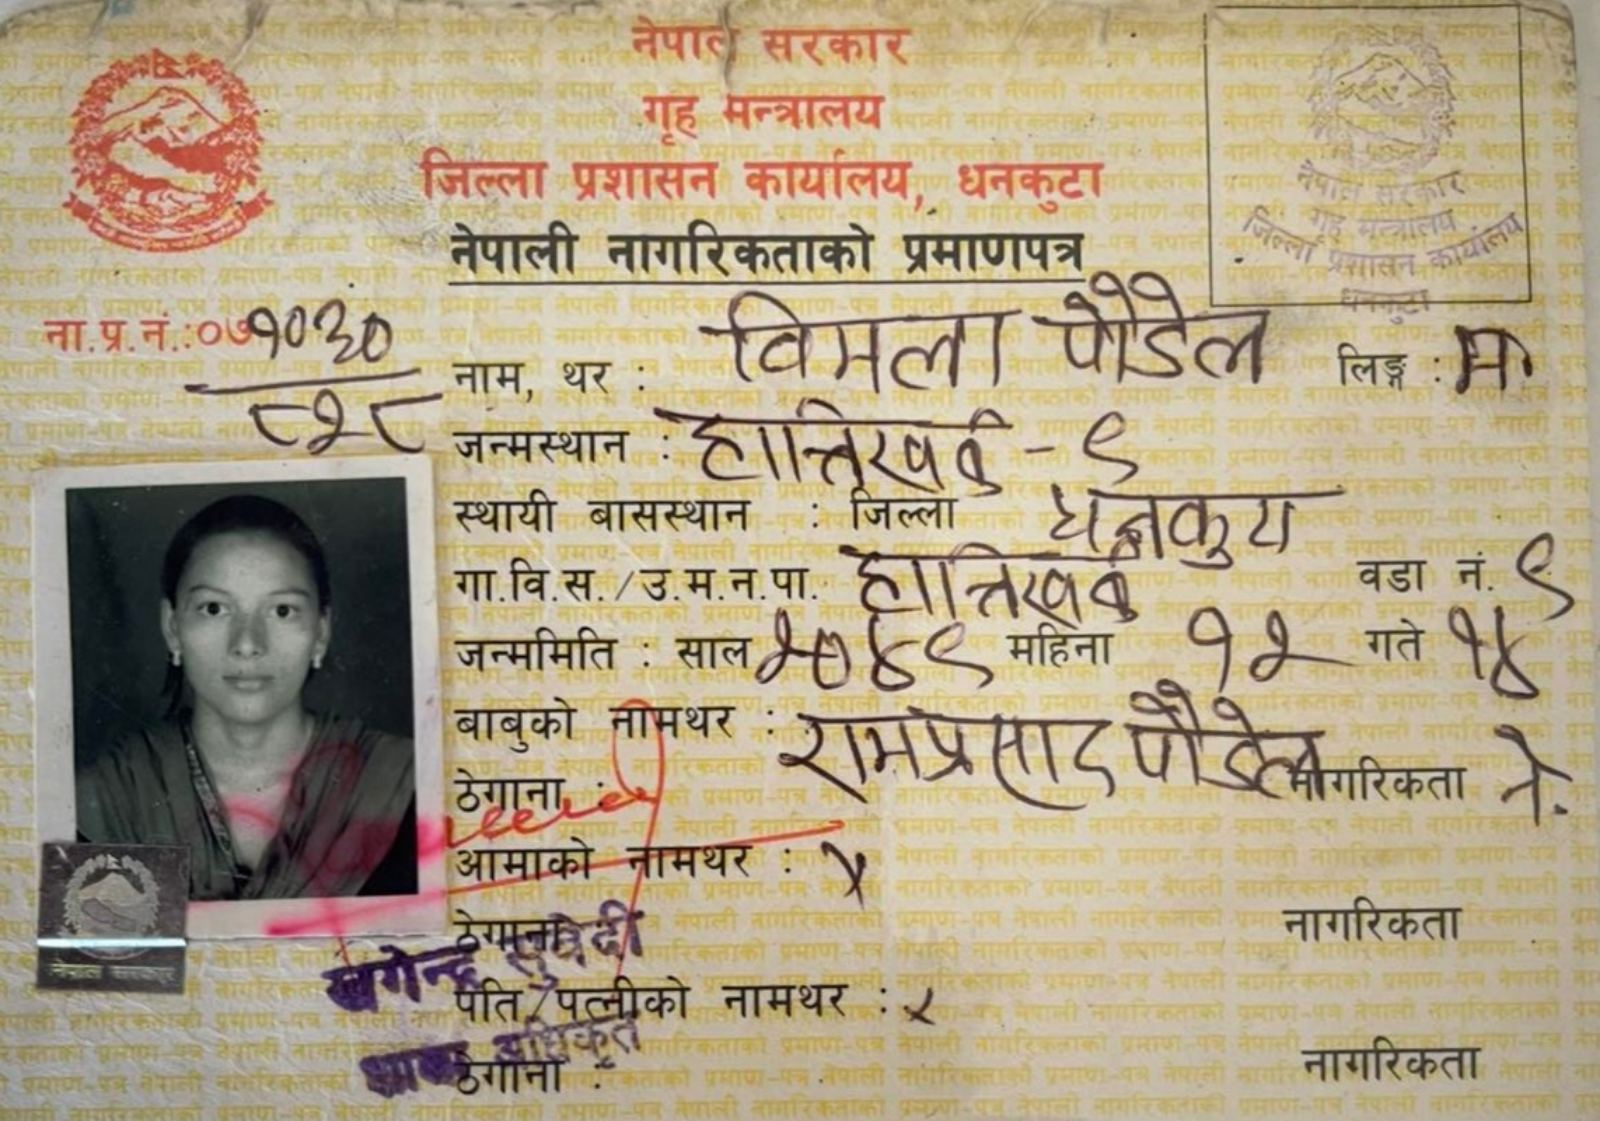 नेपाल सरकार
गृह मन्त्रालय
जिल्ला प्रशासन कार्यालय, धनकुटा
नेपाली नागरिकताको प्रमाणपत्र
नेपाल सरकार
गृह मन्त्रालय
जिल्ला प्रशासन कार्यालय
धनकुटा
ना.प्र.नं.:०७१०३०
८२८
नाम, थर : विमला पौडेल लिङ्ग : म.
जन्मस्थान : हात्तिखर्क - ९
स्थायी बासस्थान : जिल्ला धनकुटा
गा.वि.स./उ.म.न.पा. हात्तिखर्क वडा नं. ९
जन्ममिति : साल २०४९ महिना १२ गते १४
बाबुको नामथर : रामप्रसाद पौडेल
ठेगाना : नागरिकता ने.
आमाको नामथर : x
ठेगाना नागरिकता
पति/पत्नीको नामथर : x
ठेगाना : नागरिकता
खगेन्द्र सुवेदी
शाखा अधिकृत
नेपाल सरकार